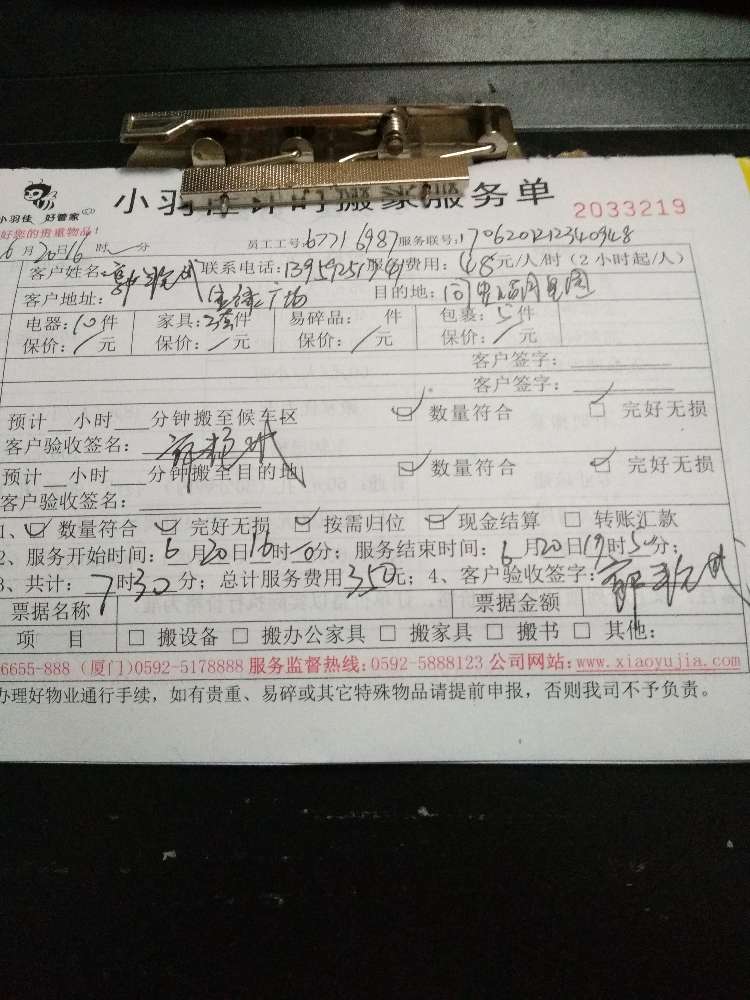 小羽佳 好管家
小羽佳计时搬家服务单
2033219
好您的贵重物品!
6月20日16时 分 员工工号:67716987 服务联号:
客户姓名: 联系电话: 服务费用:48元/人/时(2小时起/人)
客户地址: 广场 目的地:
电器:10件 家具: 件 易碎品: 件 包裹:5件
保价:/元 保价:/元 保价:/元 保价:/元
客户签字:
客户签字:
预计__小时___分钟搬至候车区 ☑ 数量符合 ☑ 完好无损
客户验收签名:
预计__小时___分钟搬至目的地 ☑ 数量符合 ☑ 完好无损
客户验收签名:
1、☑ 数量符合 ☑ 完好无损 ☑ 按需归位 ☑ 现金结算 □ 转账汇款
2、服务开始时间:6月20日16时 分;服务结束时间:6月20日19时50分;
3、共计:7时30分;总计服务费用350元;4、客户验收签字:
票据名称 票据金额
项 目 □ 搬设备 □ 搬办公家具 □ 搬家具 □ 搬书 □ 其他:
6655-888(厦门)0592-5178888 服务监督热线:0592-5888123 公司网站:www.xiaoyujia.com
办理好物业通行手续,如有贵重、易碎或其它特殊物品请提前申报,否则我司不予负责。